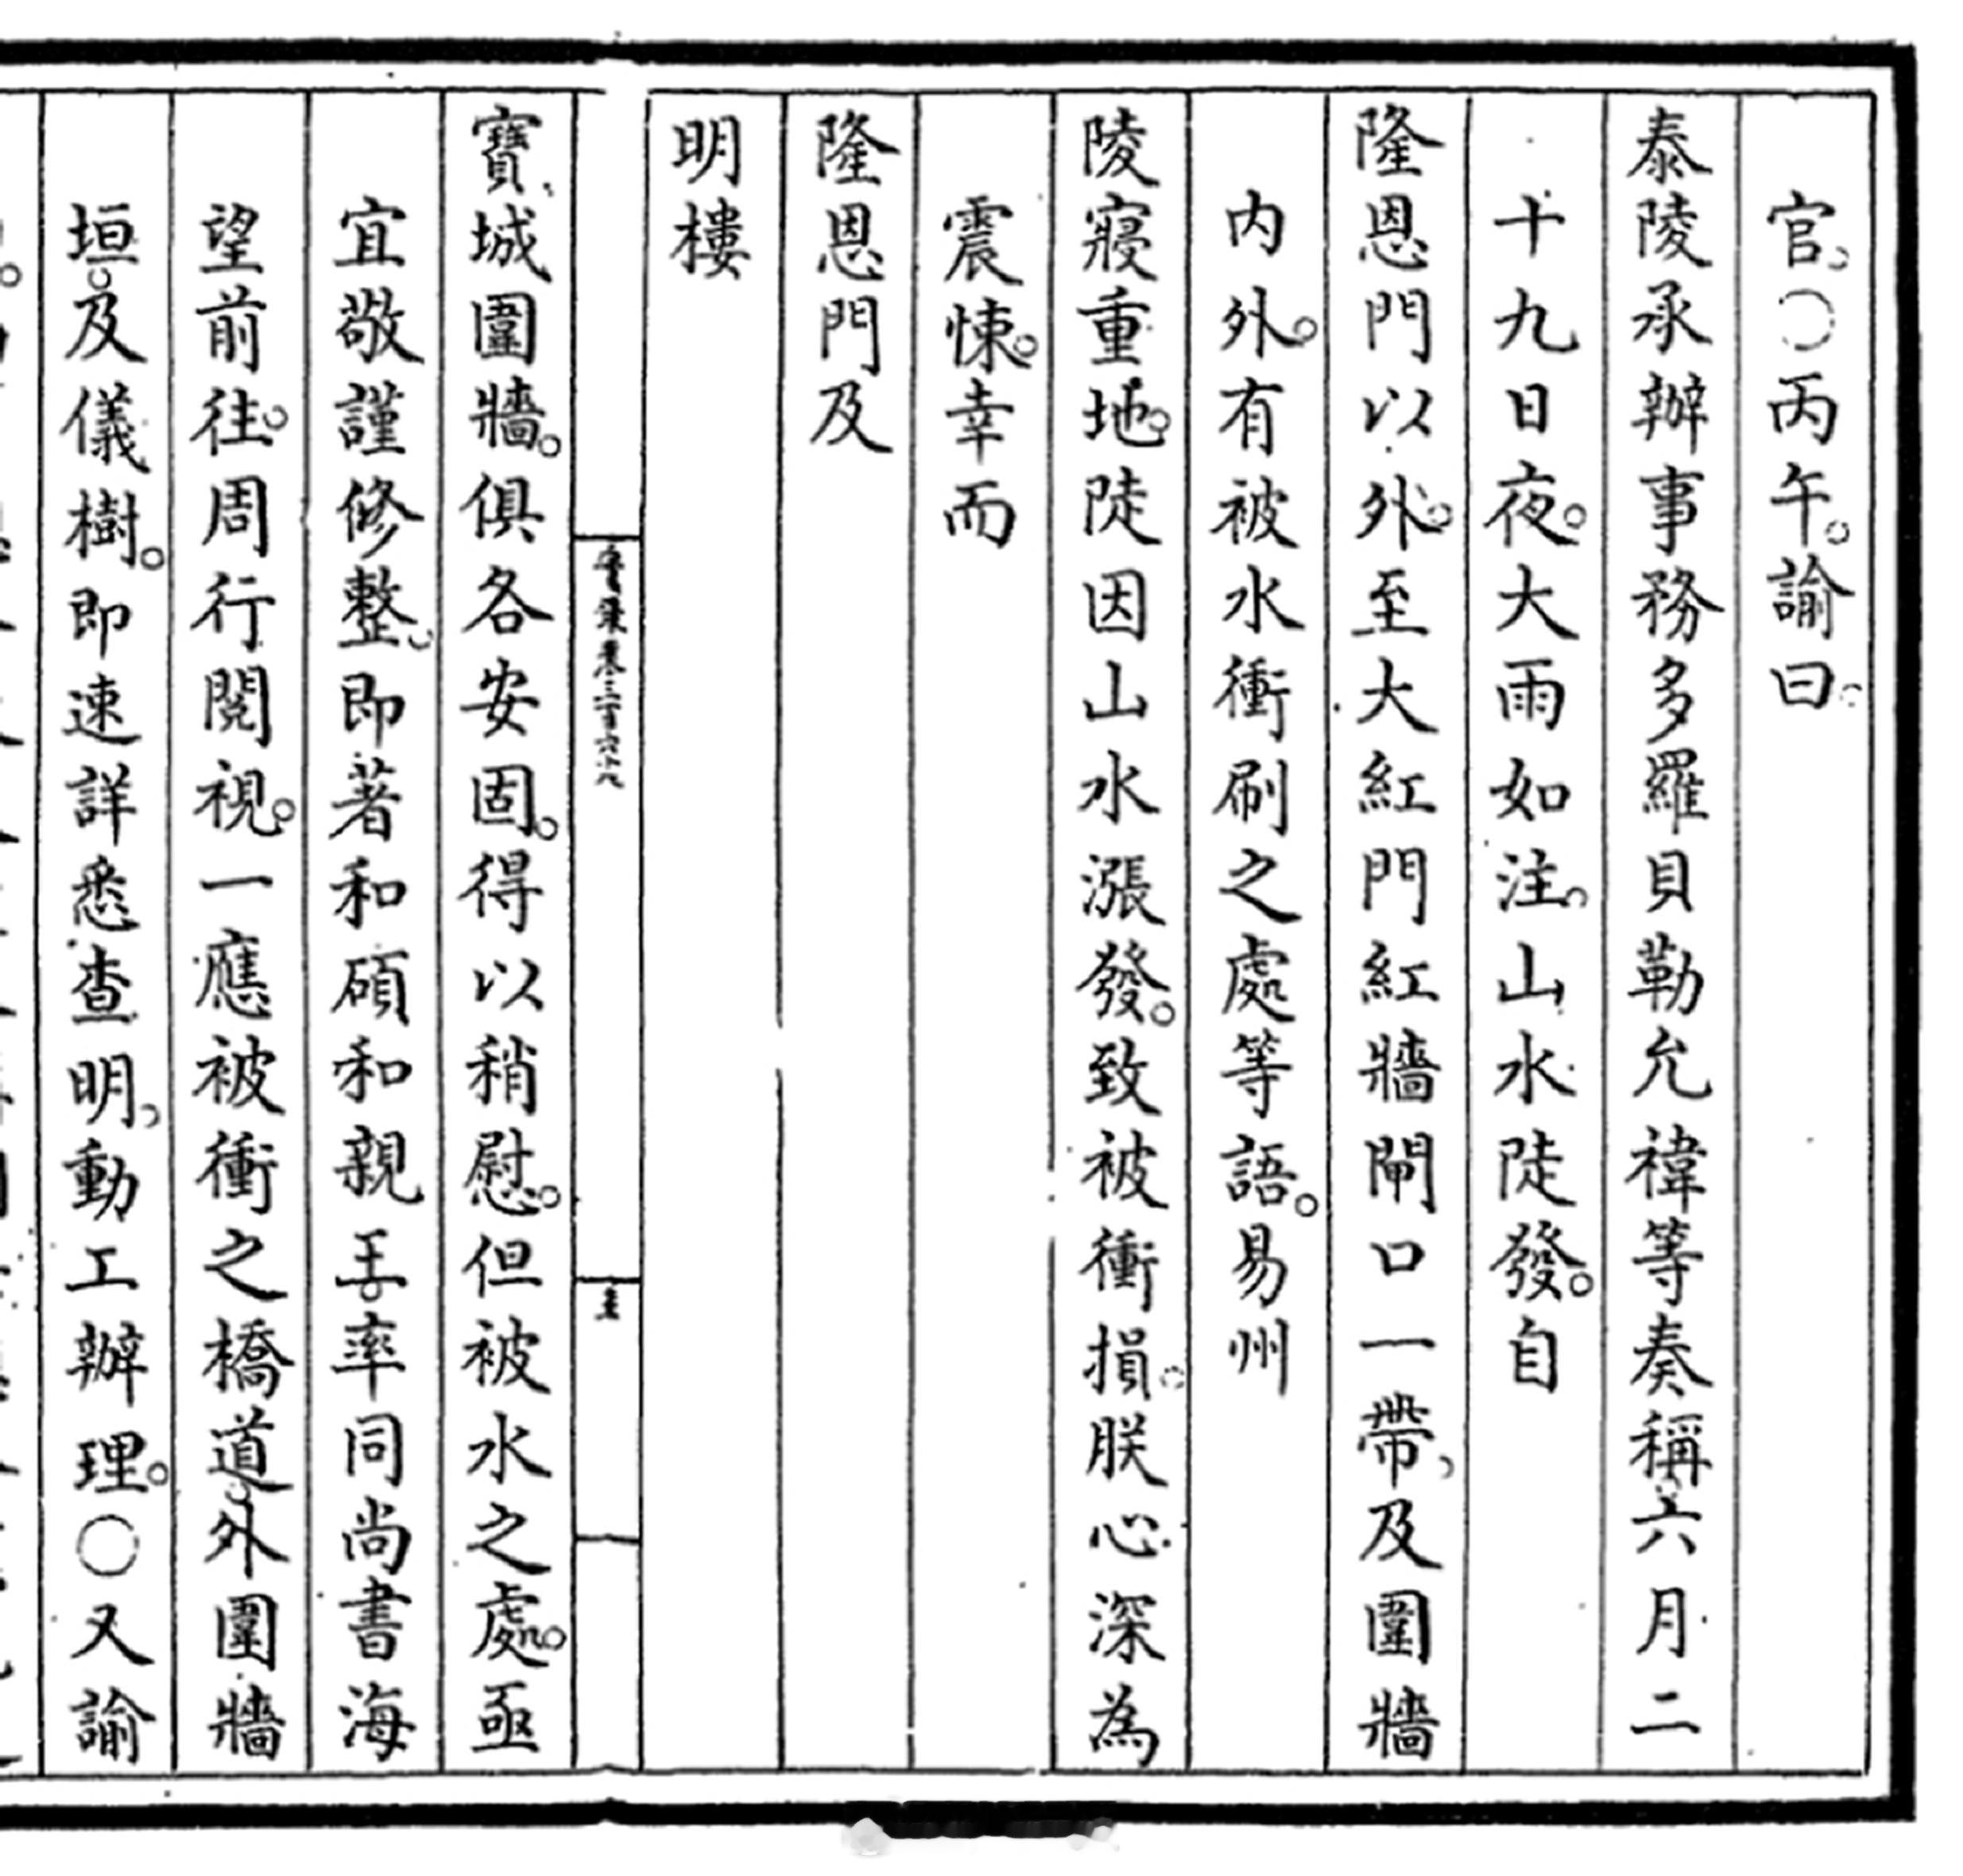 官。○丙午。諭曰。
泰陵承辦事務多羅貝勒允禕等奏稱。六月二
十九日夜。大雨如注。山水陡發。自
隆恩門以外。至大紅門紅牆閘口一帶。及圍牆
內外。有被水衝刷之處等語。易州
陵寢重地。陡因山水漲發。致被衝損。朕心深為
震悚。幸而
隆恩門及
明樓
寶城圍牆。俱各安固。得以稍慰。但被水之處。亟
宜敬謹修整。即著和碩和親王。率同尚書海
望前往。周行閱視。一應被衝之橋道。外圍牆
垣。及儀樹。即速詳悉查明。動工辦理。○又諭